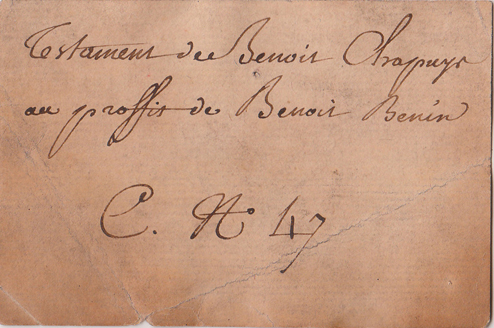 Testament de Benoit Chapuys
au proffit de Benoit Benin
C. N° 47